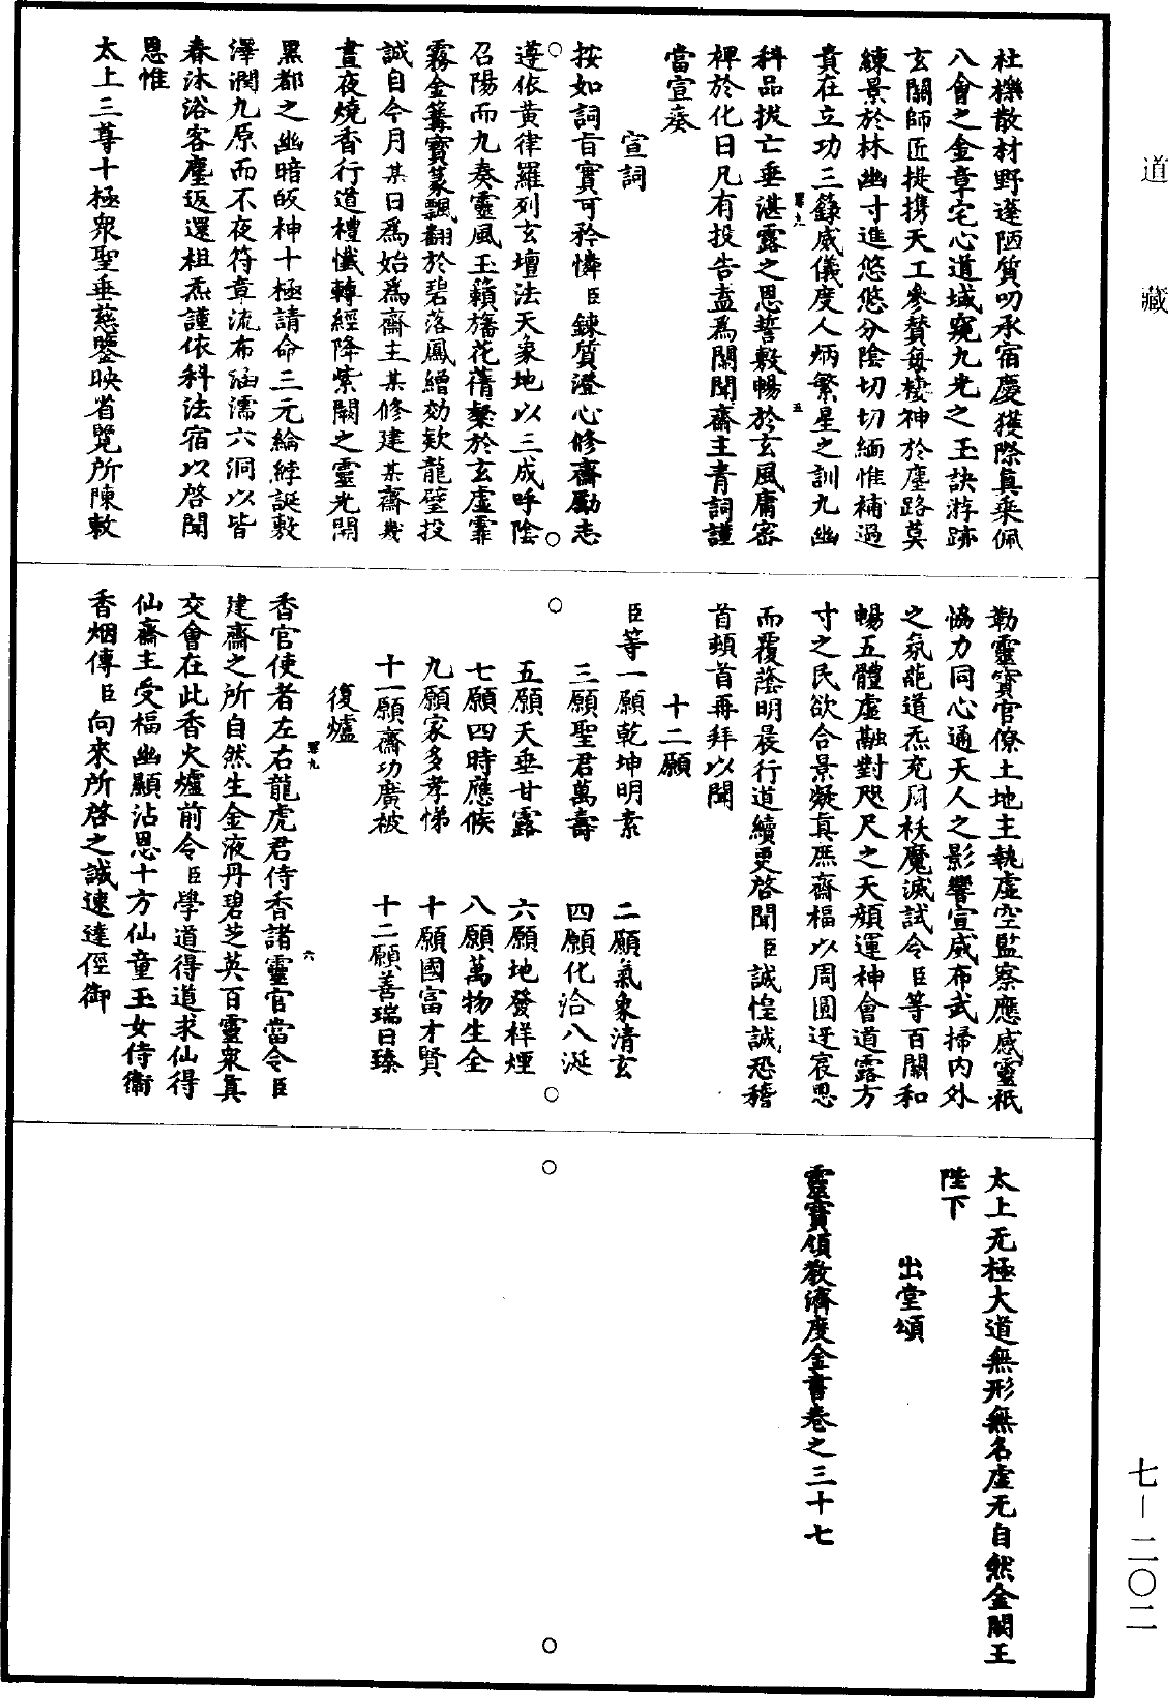 道藏
杜櫟散材野蓬陋質叨承宿慶獲際真乘佩
八會之金章宅心道域窺九光之玉訣游跡
玄關師匠提携天工參贊每棲神於塵路莫
練景於林幽寸進悠悠分陰切切緬惟補過
貴在立功三錄威儀度人炳繁星之訓九幽
科品拔亡垂湛露之恩誓敷暢於玄風庸密
裨於化日凡有投告盍為關聞齋主青詞謹
當宣奏
宣詞
按如詞旨實可矜憐臣鍊質澄心修齋勵志
遵依黃律羅列玄壇法天象地以三成呼陰
召陽而九奏靈風玉籟旛花蒨粲於玄虛霏
霧金篝寶篆飄翻於碧落鳳繒効欵龍璧投
誠自今月某日為始為齋主某修建某齋幾
晝夜燒香行道禮懺轉經降紫闕之靈光開
黑都之幽暗皈神十極請命三元綸綍誕敷
澤潤九原而不夜符章流布涵濡六洞以皆
春沐浴客塵返還祖炁謹依科法宿以啓聞
恩惟
太上三尊十極衆聖垂慈鑒映省覽所陳敕
勒靈寶官僚土地主執虛空監察應感靈祇
協力同心通天人之影響宣威布武掃內外
之氛龍道炁充周袄魔滅試令臣等百關和
暢五體虛融對咫尺之天顏運神會道露方
寸之民欲合景凝真庶齋福以周圓迓宸恩
而覆蔭明晨行道續更啓聞臣誠惶誠恐稽
首頓首再拜以聞
十二願
臣等一願乾坤明素　二願氣象清玄
三願聖君萬壽　四願化洽八涎
五願天垂甘露　六願地發祥煙
七願四時應候　八願萬物生全
九願家多孝悌　十願國富才賢
十一願齋功廣被　十二願善瑞日臻
復爐
香官使者左右龍虎君侍香諸靈官當令臣
建齋之所自然生金液丹碧芝英百靈衆真
交會在此香火爐前令臣學道得道求仙得
仙齋主受福幽顯沾恩十方仙童玉女侍衛
香烟傳臣向來所啓之誠速達徑御
太上无極大道無形無名虛无自然金闕玉
陛下
出堂頌
靈寶領教濟度金書卷之三十七
七—二〇二